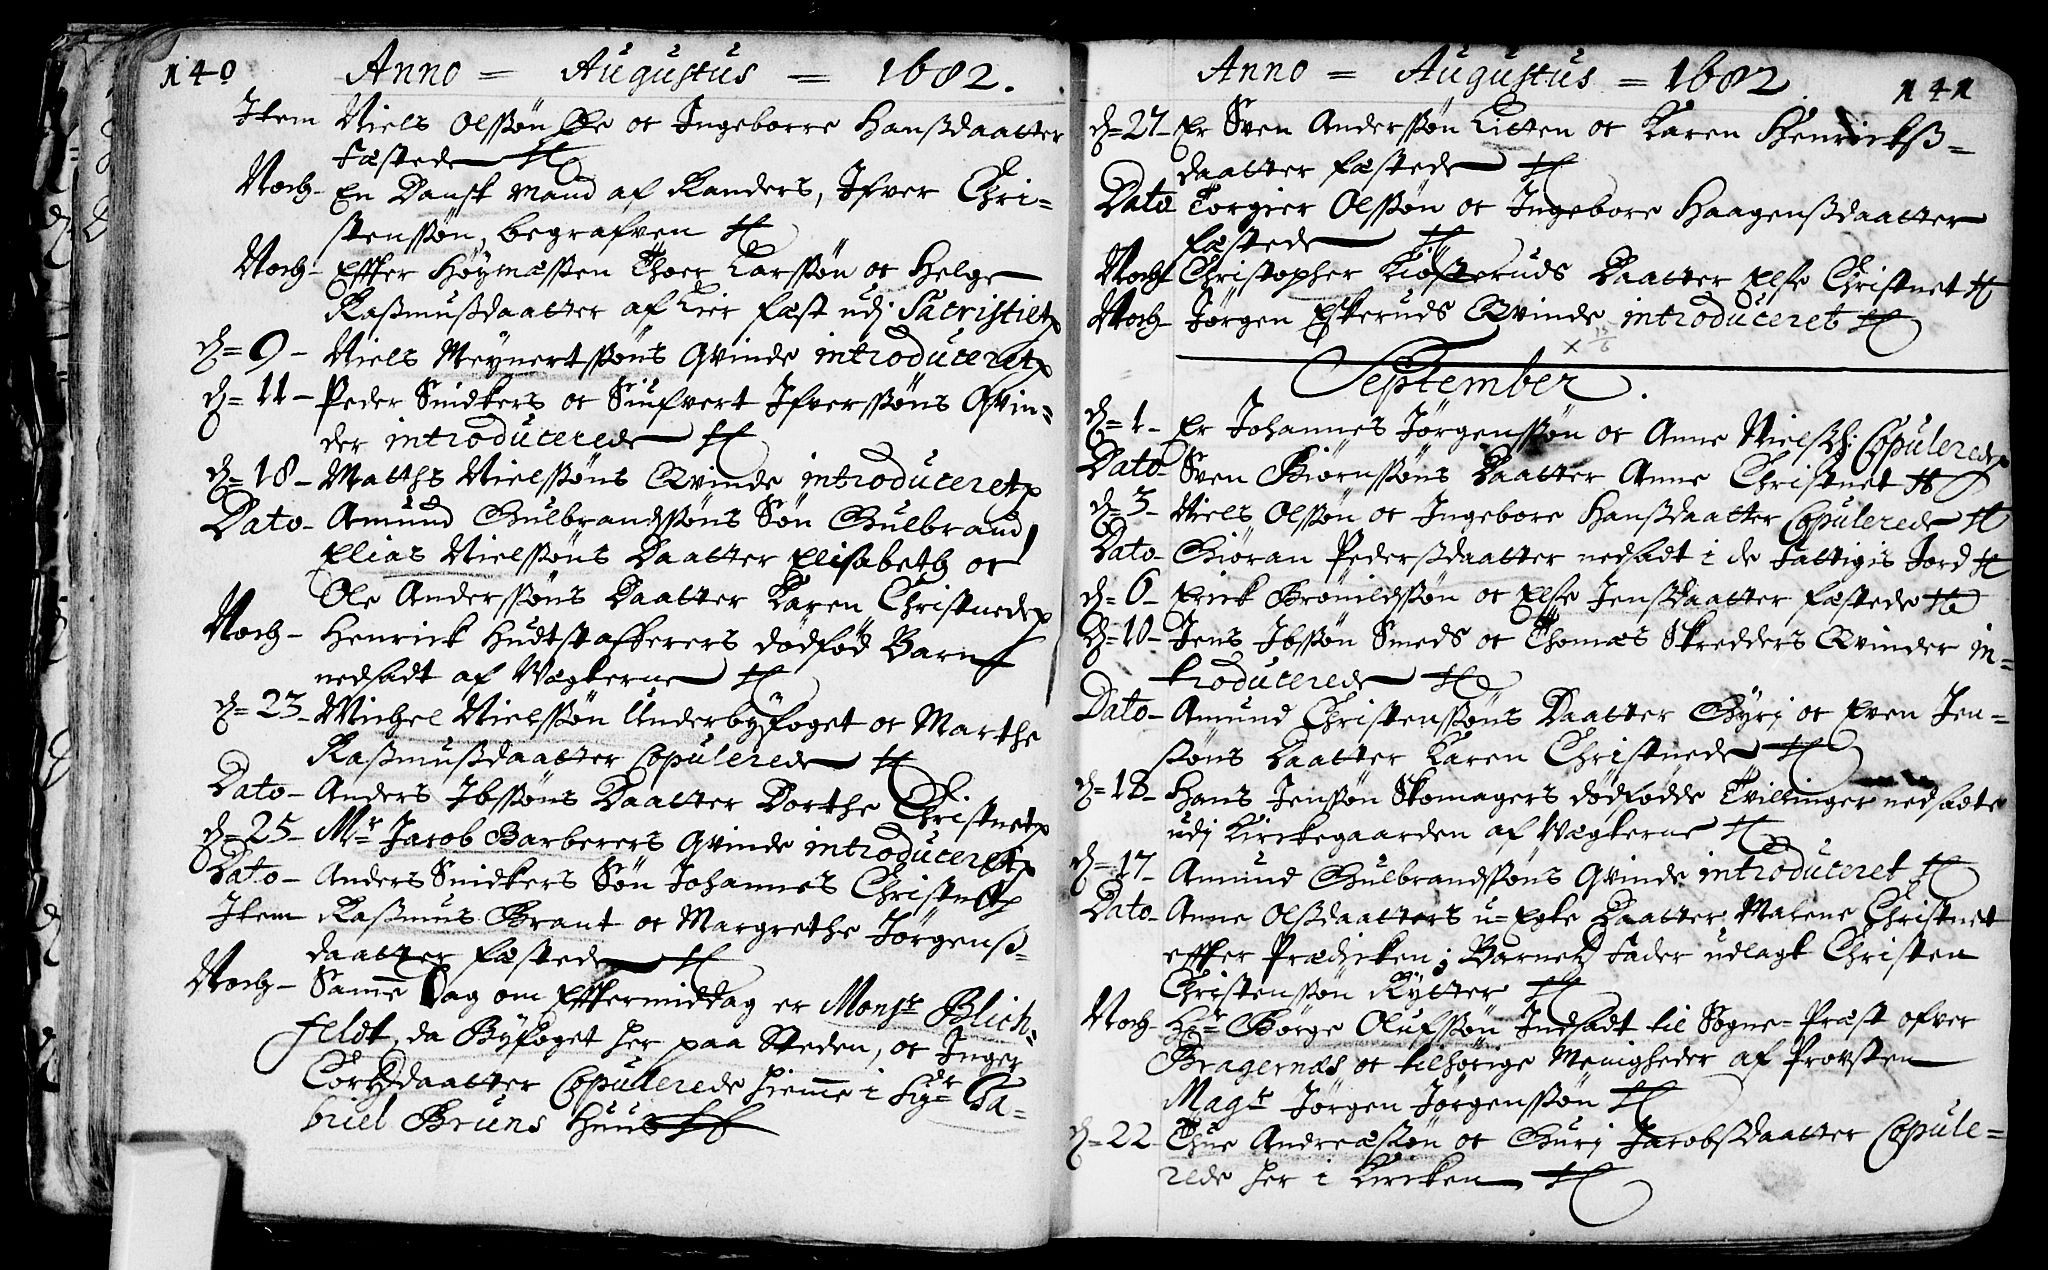 140 Anno = Augustus = 1682.
Item Niels Olssøn Øe oc Ingeborre Hanßdaatter
fæstede
Noch- En Dansk Mand af Randers, Ifver Chri=
stenssøn, begrafven
Noch- Effter Høymæssen Thoer Larssøn oc Helge
Rasmußdaatter af Lier fæst udj Sacristiet
d= 9- Niels Meynertssøns Qvinde introduceret
d= 11- Peder Snidkers oc Siufvert Ifverssøns Qvin=
der introducerede
d= 18- Matths Nielssøns Qvinde introduceret
Dato- Amund Gulbrandssøns Søn Gulbrand
Elias Nielssøns Daatter Elisabeth oc
Ole Anderssøns Daatter Karen Christnede
Noch- Henrick Hudtstafferers dødfød Barn
nedsadt af Vegterne
d= 23- Michel Nielssøn Underbyfoget oc Marthe
Rasmußdaatter Copulerede
Dato- Anders Ibssøns Daatter Dorthe Christnet
d= 25- Mr Jacob Barberers Qvinde introduceret
Dato- Anders Snidkers Søn Johannes Christnet
Item Rasmus Brant oc Margrethe Jørgenß=
daatter fæstede
Noch- Samme Dag om Efftermiddag er Monsr Blich=
feldt, da Byfoget her paa Steden, oc Inger
daatter Copulerede hieme i Sigr Ga=
briel Bruns Huus
Anno = Augustus = 1682 141
d= 27- Er Sven Anderssøn Litten oc Karen Henrickß=
daatter fæstede
Dato Torgier Olssøn oc Ingebore Haagenßdaatter
fæstede
Noch Christopher Kiøsteruds Daatter Else Christnet
Noch- Jørgen Eskeruds Qvinde introduceret
September.
d= 1- Er Johannes Jørgenssøn oc Anne Nielsd: Copulerede
Dato- Sven Biørnssøns Daatter Anne Christnet
d= 3- Niels Olssøn oc Ingebore Hanßdaatter Copulerede
Dato- Giøran Pederßdaatter nedsadt i de Fattigis Jord
d= 6- Erick Brønildssøn oc Else Jenßdaatter fæstede
d= 10- Jens Ibssøn Smeds oc Thomæs Skredders Qvinder in=
troducerede
Dato- Amund Christenssøns Daatter Gyri oc Even Jen=
søns Daatter Karen Christnede
d= 18- Hans Jenssøn Skomagers dødfødde Tvillinger nedsadte
udj Kirckegaarden af Vegterne
d= 17- Amund Gulbrandssøns Qvinde introduceret
Dato- Anne Olßdaatters u=Egte Daatter, Malene Christnet
effter Prædicken; Barnets Fader udlagt Christen
Christenssøn Rytter
Noch- Hr Børge Olufssøn Indsadt til Sogne=Præst ofver
Bragernæs oc tilhørige Menigheder af Provsten
Magr Jørgen Jørgenssøn
d= 22- Thue Andreæssøn oc Guri Jacobßdaatter Copule=
rede her i Kircken